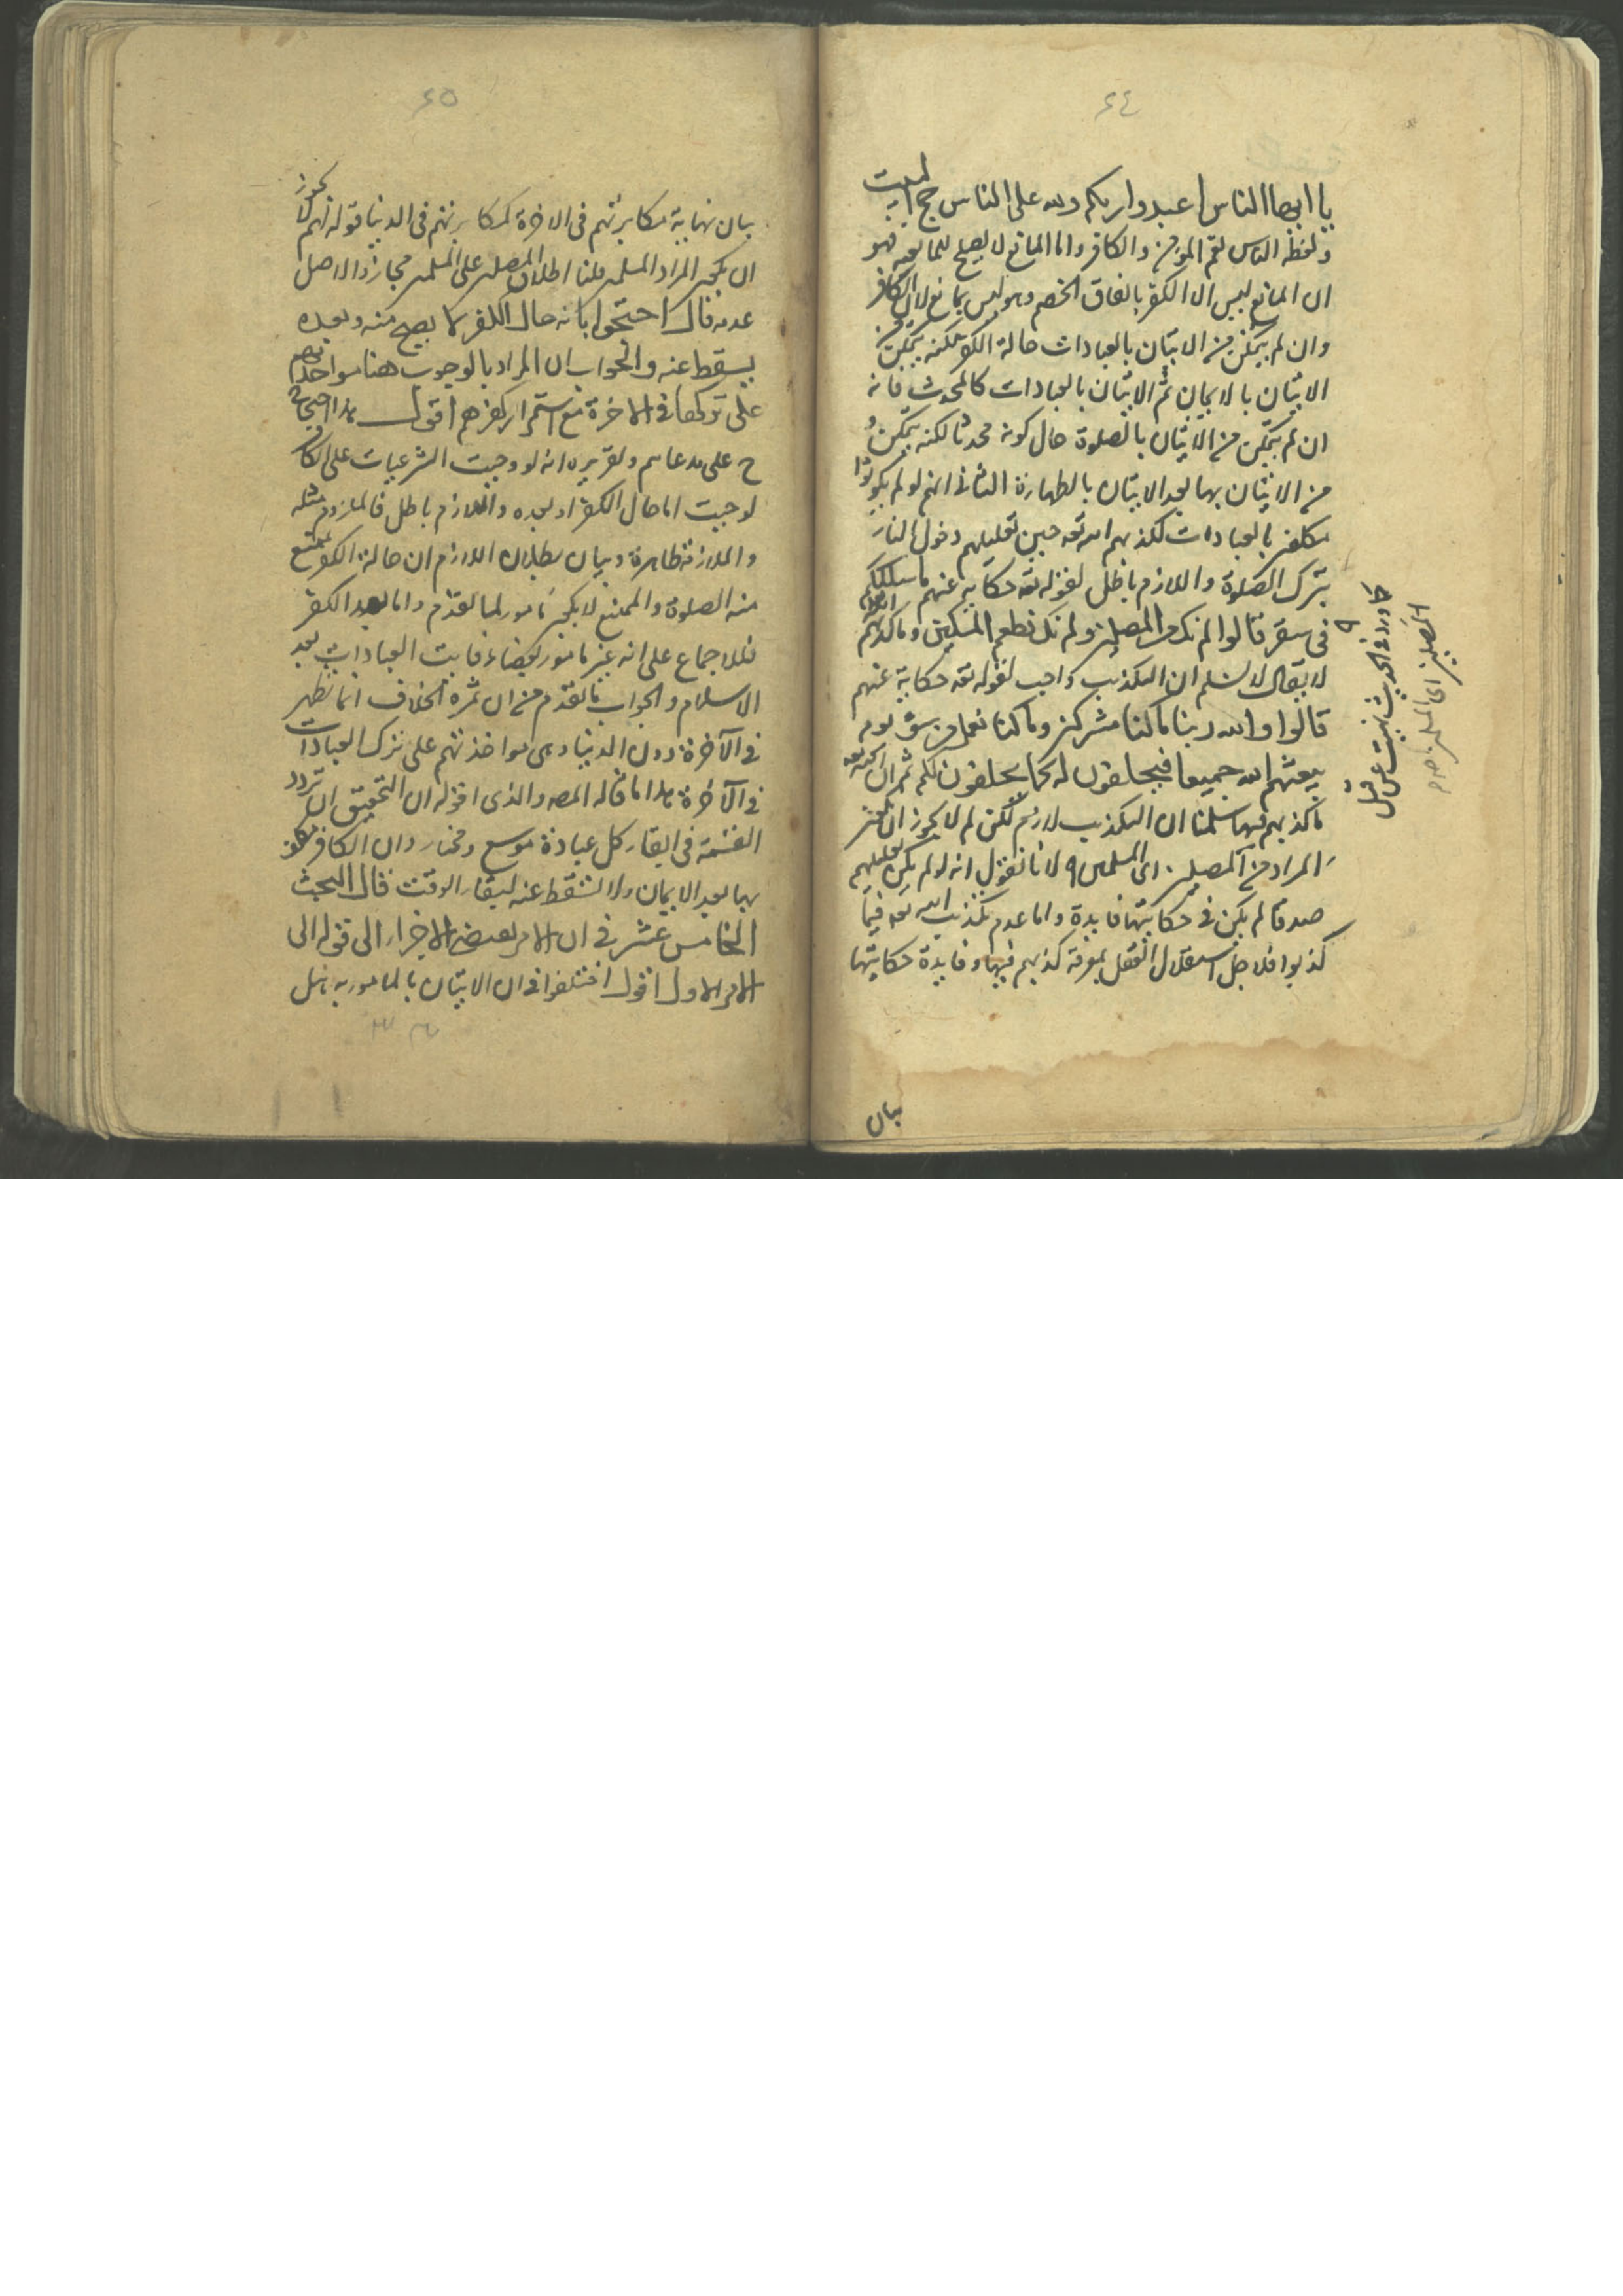 ٤٤
يا ايها الناس اعبدوا ربكم ولله على الناس حج البيت
ولفظة الناس تعم المومن والكافر واما المانع لا يصلح للمانعية فهو
ان المانع ليس الا الكفر باتفاق الخصم وهو ليس بمانع لان الكافر
وان لم يتمكن من الاتيان بالعبادات حالة الكفر لكنه يتمكن من
الاتيان بالايمان ثم الاتيان بالعبادات كالمحدث فانه
ان لم يتمكن من الاتيان بالصلوة حال كونه محدثا لكنه يتمكن
من الاتيان بها بعد الاتيان بالطهارة الثانى انهم لو لم يكونوا
مكلفين بالعبادات لكذبهم الله تعه حين تعليلهم دخول النار
بترك الصلوة واللازم باطل لقوله تعه حكاية عنهم ما سلككم
فى سقر قالوا لم نك من المصلين ولم نك نطعم المسكين وما كذبهم
لا يقال لا نسلم ان التكذيب واجب لقوله تعه حكاية عنهم
قالوا والله ربنا ما كنا مشركين وما كنا نعمل من سوء يوم
يبعثهم الله جميعا فيحلفون له كما يحلفون لكم ثم ان الله تعه
ما كذبهم فيها سلمنا ان التكذيب لازم لكن لم لا يجوز ان يكون
المراد من المصلين اى المسلمين لانا نقول انه لو لم يكن تعليلهم
صدقا لم يكن فى حكايتها فايدة واما عدم تكذيب الله تعه فيما
كذبوا فلاجل استقلال العقل بمعرفة كذبهم فيها وفايدة حكايتها
كما ورد فى الحديث نهيت عن قتل
المصلين اى المسلمين
بيان
٤٥
بيان نهاية مكابرتهم فى الاخرة كمكابرتهم فى الدنيا قوله لم لا يجوز
ان يكون المراد المسلمين قلنا اطلاق المصلين على المسلمين مجاز والاصل
عدمه قال احتجوا بانه حال الكفر لا يصح منه وبعده
يسقط عنه والجواب ان المراد بالوجوب هنا مواخذتهم
على تركها فى الاخرة مع استمرار كفرهم اقول هذا احتجاج
على مدعاهم وتقريره انه لو وجبت الشرعيات على الكافر
لوجبت اما حال الكفر او بعده واللازم باطل فالملزوم مثله
والملازمة ظاهرة وبيان بطلان اللازم ان حالة الكفر يمتنع
منه الصلوة والممتنع لا يكون مامورا لما تقدم واما بعد الكفر
فللاجماع على انه غير مامور بقضاء فايت العبادات بعد
الاسلام والجواب ما تقدم من ان ثمرة الخلاف انما تظهر
فى الآخرة دون الدنيا وهى مواخذتهم على ترك العبادات
فى الآخرة هذا ما قاله المصه والذى اقوله ان التحقيق ان تردد
القسمة فى ايقاع كل عبادة موسع ومختار وان الكافر مكلف
بها بعد الايمان ولا تسقط عنه لبقاء الوقت قال البحث
الخامس عشر فى ان الامر يقتضى الاجزاء الى قوله الى
الامر الاول اقول اختلفوا فى ان الاتيان بالمامور به هل